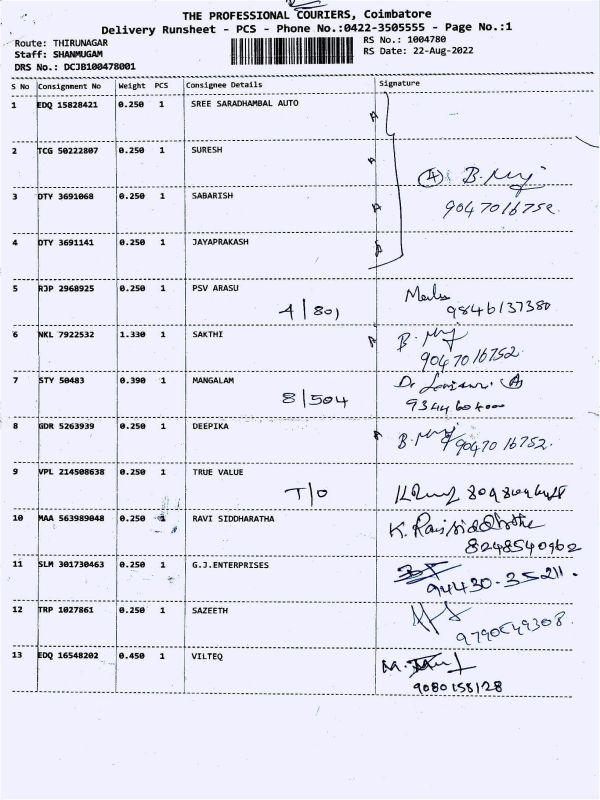 THE PROFESSIONAL COURIERS, Coimbatore
Delivery Runsheet - PCS - Phone No.:0422-3505555 - Page No.:1
Route: THIRUNAGAR
Staff: SHANMUGAM
DRS No.: DCJB100478001
RS No.: 1004780
RS Date: 22-Aug-2022
S No Consignment No Weight PCS Consignee Details Signature
1 EDQ 15828421 0.250 1 SREE SARADHAMBAL AUTO
2 TCG 50222807 0.250 1 SURESH
A B.
9047016752
3 DTY 3691068 0.250 1 SABARISH
4 DTY 3691141 0.250 1 JAYAPRAKASH
5 RJP 2968925 0.250 1 PSV ARASU
4/801 9846137380
6 NKL 7922532 1.330 1 SAKTHI B.
9047016752
7 STY 50483 0.390 1 MANGALAM
8/504
8 GDR 5263939 0.250 1 DEEPIKA B. 9047016752.
9 VPL 214508638 0.250 1 TRUE VALUE
T/O
10 MAA 563989048 0.250 1 RAVI SIDDHARATHA K. Ravisiddharthe
8248540962
11 SLM 301730463 0.250 1 G.J.ENTERPRISES
94430-35211.
12 TRP 1027861 0.250 1 SAZEETH
13 EDQ 16548202 0.450 1 VILTEQ M.
9080158128